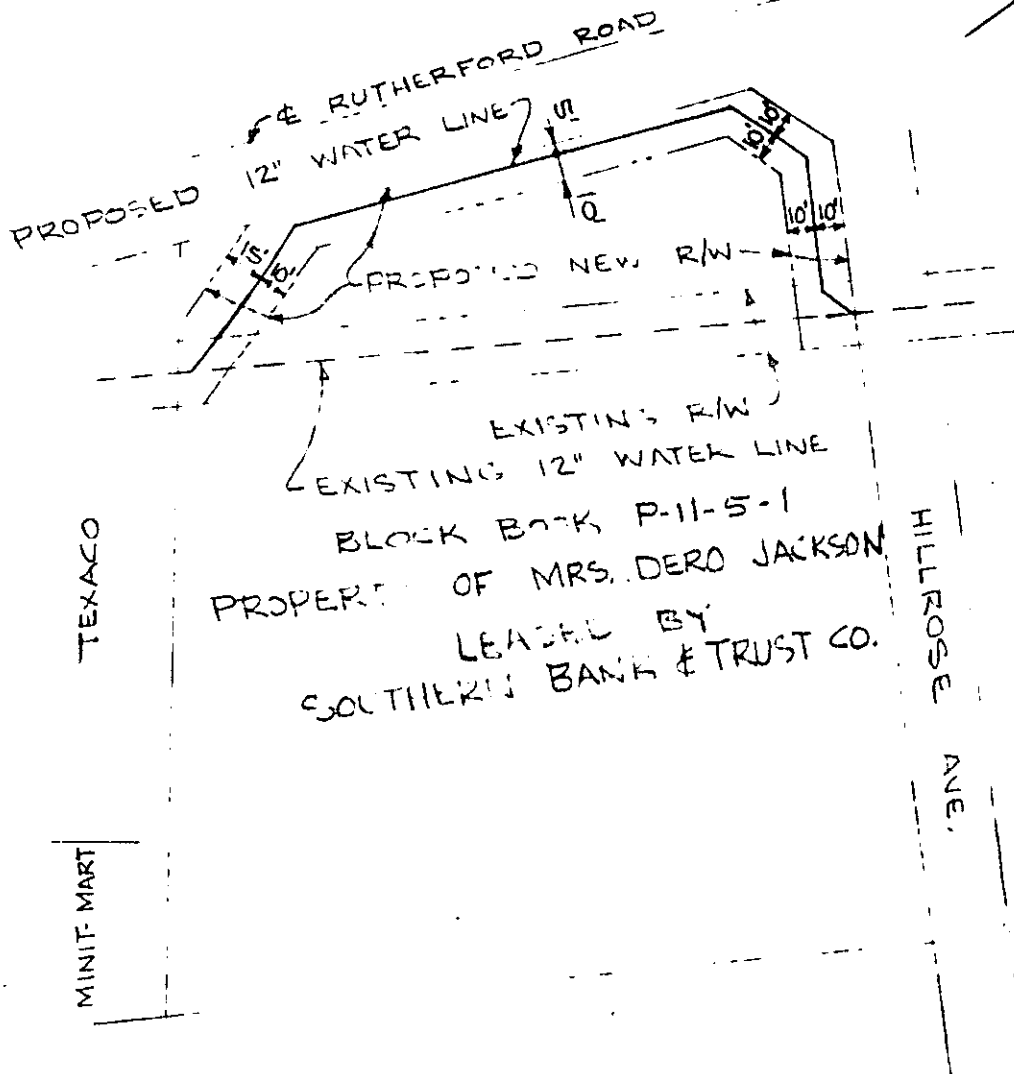 ℄ RUTHERFORD ROAD
PROPOSED 12" WATER LINE
10'
10'
10'
10'
PROPOSED NEW R/W
EXISTING R/W
EXISTING 12" WATER LINE
BLOCK BOOK P-11-5-1
PROPERTY OF MRS. DERO JACKSON
LEASED BY
SOUTHERN BANK & TRUST CO.
TEXACO
MINIT-MART
HILLROSE AVE.